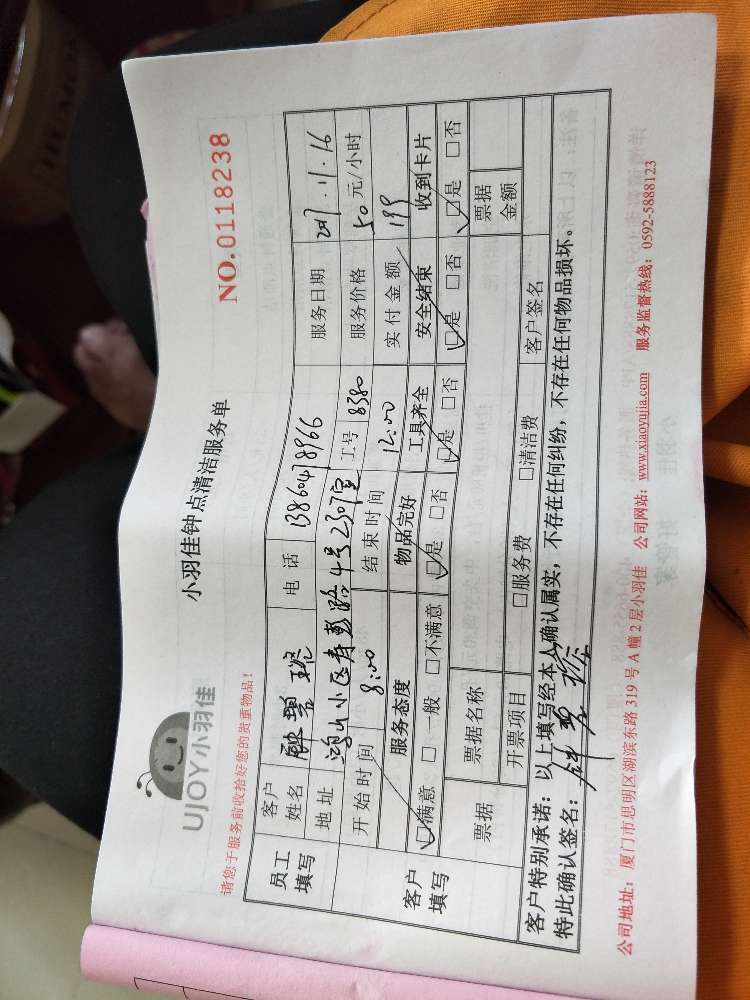 UJOY小羽佳
小羽佳钟点清洁服务单
NO.0118238
请您于服务前收拾好您的贵重物品!
员工填写
客户姓名 电话 13860478966 服务日期 2017.11.16
地址 4号230 工号 8380 服务价格 50元/小时
开始时间 8:00 结束时间 12:00 实付金额 199
客户填写
服务态度 物品完好 工具齐全 安全结束 收到卡片
☑满意 □一般 □不满意 ☑是 □否 ☑是 □否 ☑是 □否 ☑是 □否
票据 票据名称 票据金额
开票项目 □服务费 □清洁费 客户签名
客户特别承诺:以上填写经本人确认属实,不存在任何纠纷,不存在任何物品损坏。
特此确认签名:
公司地址:厦门市思明区湖滨东路319号A幢2层小羽佳 公司网站:www.xiaoyujia.com 服务监督热线:0592-5888123